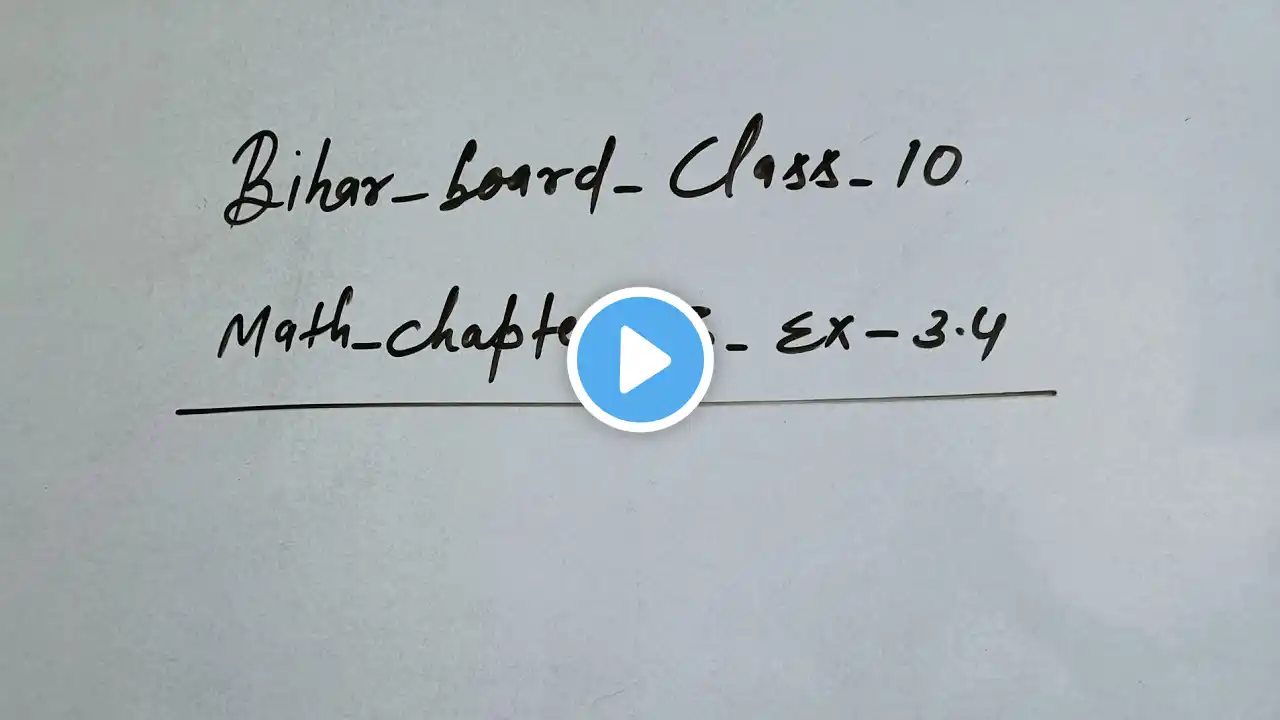 Bihar_board_Class_10
Math_chapte _ Ex-3.4